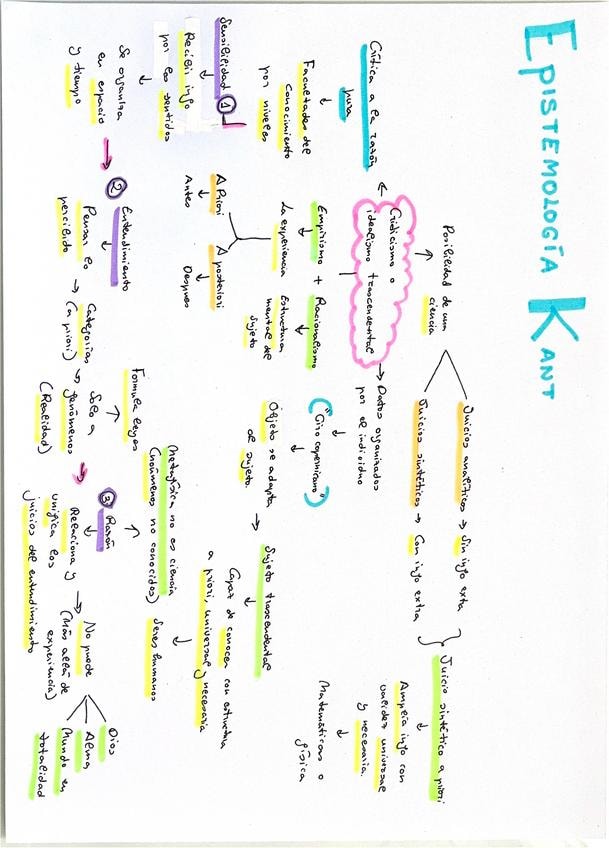 EPISTEMOLOGÍA KANT
Posibilidad de una
ciencia
Juicios analíticos → Sin info extra
Juicios sintéticos → Con info extra
Juicio sintético a priori
Amplía info con
validez universal
y necesaria.
Matemáticas o
física
Criticismo o
idealismo trascendental
Crítica a la razón
pura
Facultades del
conocimiento
por niveles
Datos organizados
por el individuo
"Giro copernicano"
Objeto se adapta
al sujeto.
Sujeto trascendental
Capaz de conocer con estructura
a priori, universal y necesaria
Seres humanos
Empirismo + Racionalismo
La experiencia
Estructura
mental del
sujeto
A Priori
Antes
A posteriori
Después
Sensibilidad 1
Recibir info
por los sentidos
Se organiza
en espacio
y tiempo
2 Entendimiento
Pensar lo
percibido
→ Categorías
(a priori)
→ Solo a
fenómenos
(Realidad)
Formula leyes
3 Razón
Relaciona y
unifica los
juicios del entendimiento
Metafísica no es ciencia
(noúmenos no conocidos)
→ No puede
(Más allá de
experiencia)
Dios
Alma
Mundo en
totalidad